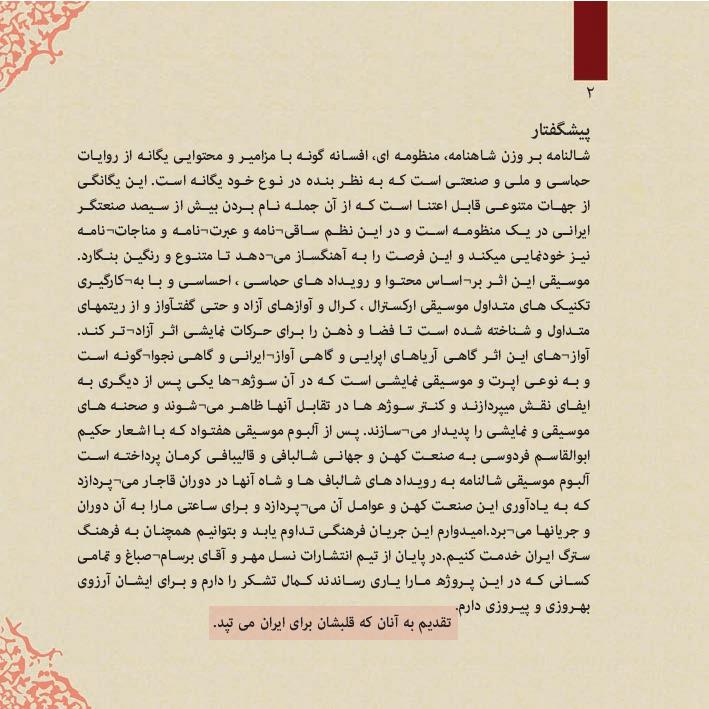 ۲
پیشگفتار
شالنامه بر وزن شاهنامه، منظومه ای، افسانه گونه با مزامیر و محتوایی یگانه از روایات
حماسی و ملی و صنعتی است که به نظر بنده در نوع خود یگانه است. این یگانگی
از جهات متنوعی قابل اعتنا است که از آن جمله نام بردن بیش از سیصد صنعتگر
ایرانی در یک منظومه است و در این نظم ساقی¬نامه و عبرت¬نامه و مناجات¬نامه
نیز خودنمایی میکند و این فرصت را به آهنگساز می¬دهد تا متنوع و رنگین بنگارد.
موسیقی این اثر بر¬اساس محتوا و رویداد های حماسی ، احساسی و با به¬کارگیری
تکنیک های متداول موسیقی ارکسترال ، کرال و آوازهای آزاد و حتی گفتآواز و از ریتمهای
متداول و شناخته شده است تا فضا و ذهن را برای حرکات نمایشی اثر آزاد¬تر کند.
آواز¬های این اثر گاهی آریاهای اپرایی و گاهی آواز¬ایرانی و گاهی نجوا¬گونه است
و به نوعی اپرت و موسیقی نمایشی است که در آن سوژه¬ها یکی پس از دیگری به
ایفای نقش میپردازند و کنتر سوژه ها در تقابل آنها ظاهر می¬شوند و صحنه های
موسیقی و نمایشی را پدیدار می¬سازند. پس از آلبوم موسیقی هفتواد که با اشعار حکیم
ابوالقاسم فردوسی به صنعت کهن و جهانی شالبافی و قالیبافی کرمان پرداخته است
آلبوم موسیقی شالنامه به رویداد های شالباف ها و شاه آنها در دوران قاجار می¬پردازد
که به یادآوری این صنعت کهن و عوامل آن می¬پردازد و برای ساعتی مارا به آن دوران
و جریانها می¬برد.امیدوارم این جریان فرهنگی تداوم یابد و بتوانیم همچنان به فرهنگ
سترگ ایران خدمت کنیم.در پایان از تیم انتشارات نسل مهر و آقای برسام¬صباغ و تمامی
کسانی که در این پروژه مارا یاری رساندند کمال تشکر را دارم و برای ایشان آرزوی
بهروزی و پیروزی دارم.
تقدیم به آنان که قلبشان برای ایران می تپد.